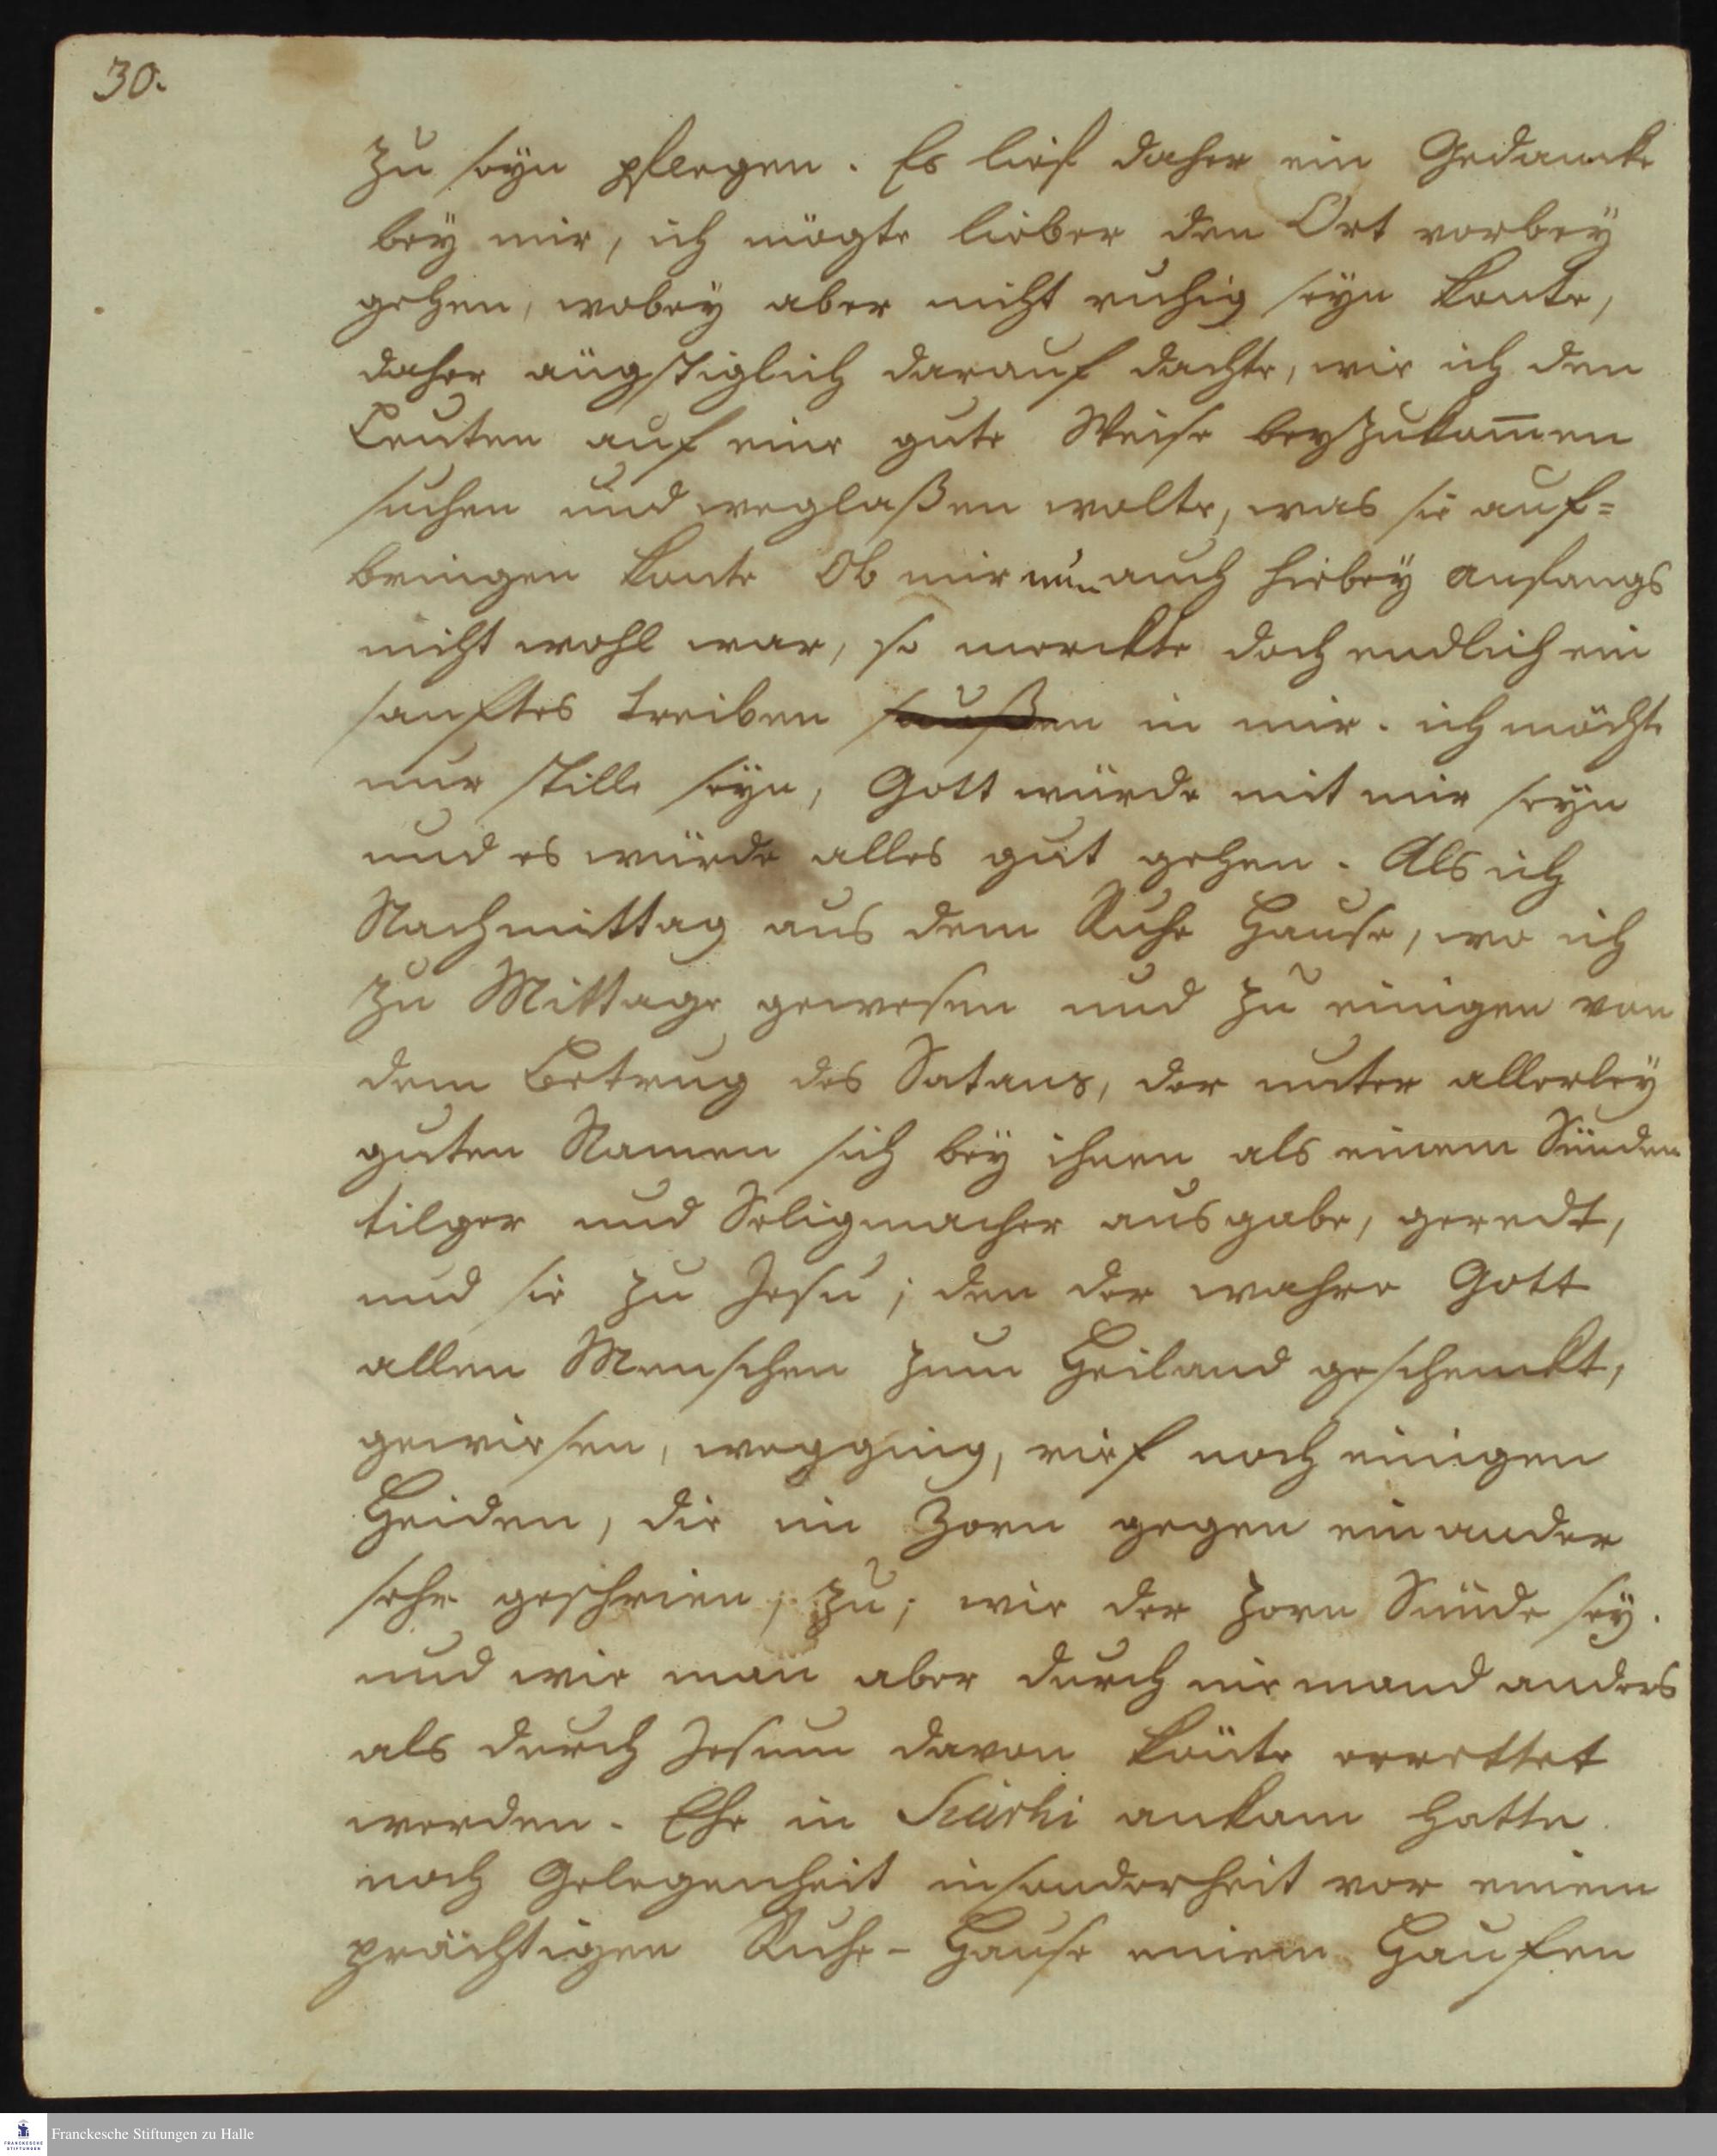 30.
zu seyn pflegen. Es lief daher ein Gedancke
bey mir, ich mögte lieber den Ort vorbey
gehen, wobey aber nicht ruhig seyn konte,
daher ängstiglich darauf dachte, wie ich den
Leuten auf eine gute Weise beyzukom̅en
suchen und weglaßen wolte, was sie auf=
bringen konte Ob mir nun auch hiebey anfangs
nicht wohl war, so merckte doch endlich ein
sanftes treiben in mir. ich möchte
nur stille seyn, Gott würde mit mir seyn
und es würde alles gut gehen. Als ich
Nachmittag aus dem Ruhe Hause, wo ich
zu Mittage gewesen und zu einigen von
dem Betrug des Satans, der unter allerley
guten Namen sich bey ihnen als einem Sünden
tilger und Seligmacher ausgabe, geredt,
und sie zu Jesu, den der wahre Gott
allen Menschen zum Heiland geschenckt,
gewiesen, wegging, rief noch einigen
Heiden, die im Zorn gegen einander
sehr geschrien, zu, wie der Zorn Sünde sey.
und wie man aber durch niemand anders
als durch Jesum davon könte errettet
werden. Ehe in Siarhi ankam hatte
noch Gelegenheit insonderheit vor einem
prächtigen Ruhe-Hause einem Haufen
Franckesche Stiftungen zu Halle
FRANCKESCHE
STIFTUNGEN